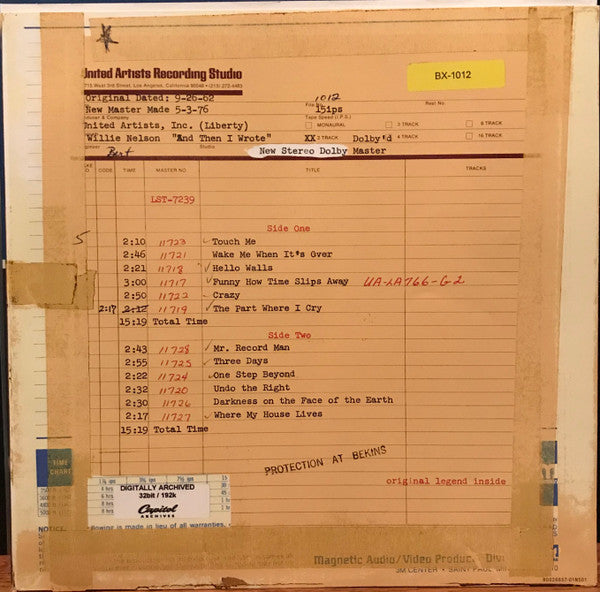 United Artists Recording Studio
BX-1012
Original Dated: 9-26-62
1012
New Master Made 5-3-76
15ips
Reel No.
Tape Speed (I.P.S.)
United Artists, Inc. (Liberty)
MONAURAL 3 TRACK 8 TRACK
Willie Nelson "And Then I Wrote"
XX 2 TRACK Dolby'd 4 TRACK 16 TRACK
Bert
Studio
New Stereo Dolby Master
CODE TIME MASTER NO TITLE TRACKS
LST-7239
Side One
5
2:10 11723 Touch Me
2:46 11721 Wake Me When It*s Gver
2:21 11718 Hello Walls
3:00 11717 Funny How Time Slips Away UA-LA766-G2
2:50 11722 Crazy
2:17 2:12 11719 The Part Where I Cry
15:19 Total Time
Side Two
2:43 11728 Mr. Record Man
2:55 11725 Three Days
2:22 11724 One Step Beyond
2:32 11720 Undo the Right
2:30 11726 Darkness on the Face of the Earth
2:17 11727 Where My House Lives
15:19 Total Time
PROTECTION AT BEKINS
TIME
CHART
original legend inside
DIGITALLY ARCHIVED
32bit / 192k
Capitol
ARCHIVES
NOTICE:
is made in lieu of all warranties,
Magnetic Audio/Video Products Div
3M CENTER • SAINT PAUL, MIN